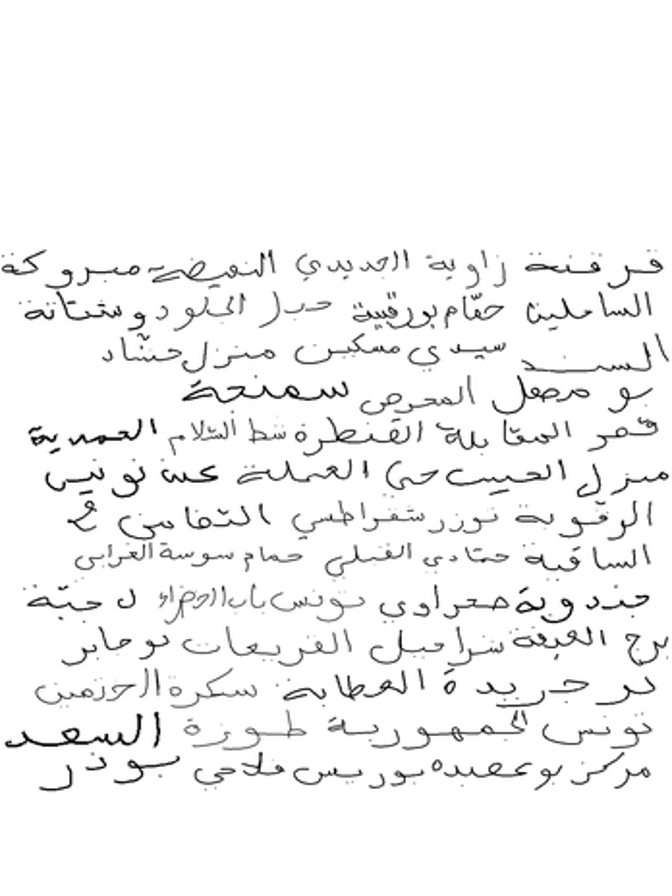 قرقنة زاوية الجديدي النفيضة مبروكة
الساحلين حمّام بورقيبة جبل الجلود وشتاتة
السند سيدي مسكين منزل حشّاد
بو مرصل المعرض سمنجة
قصر المقابلة القنطرة شط السّلام العمرية
منزل الحبيب حي العملة عين تونس
الرقوبة توزر شقراطسي التضامن 2
الساقية حمّادي القبلي حمام سوسة الغرابي
جندوبة صحراوي تونس باب الخضراء دجبّة
برج العيفة شراحيل القريعات بوجابر
بر جريدة العطاية سكرة الحزمين
تونس الجمهورية طورة السعد
مركز بوعصيدة بوريس فلاحي بوذر